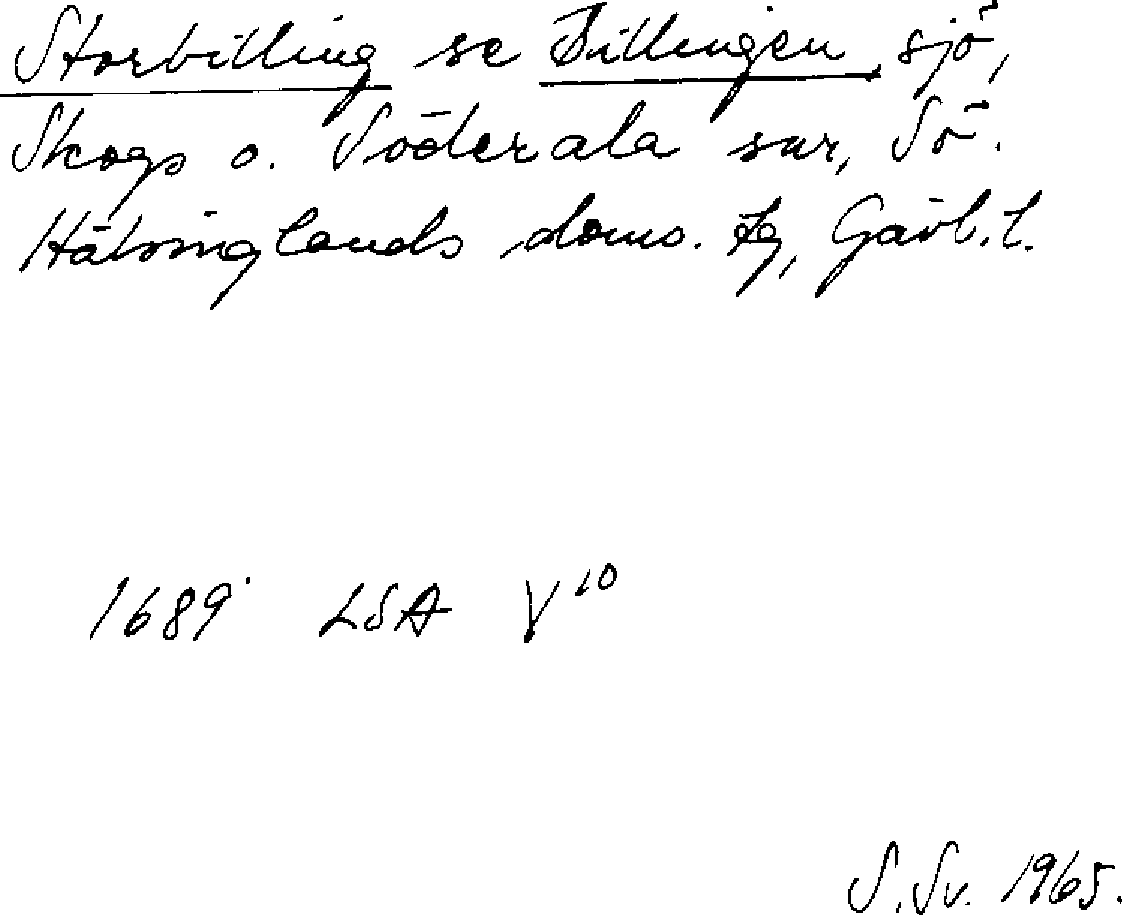 Storbilling se Billingen, sjö,
Skogs o. Söderala snr, Sö.
Hälsinglands doms. tg, Gävl.l.
1689 LSA V¹⁰
S.Sv. 1965.